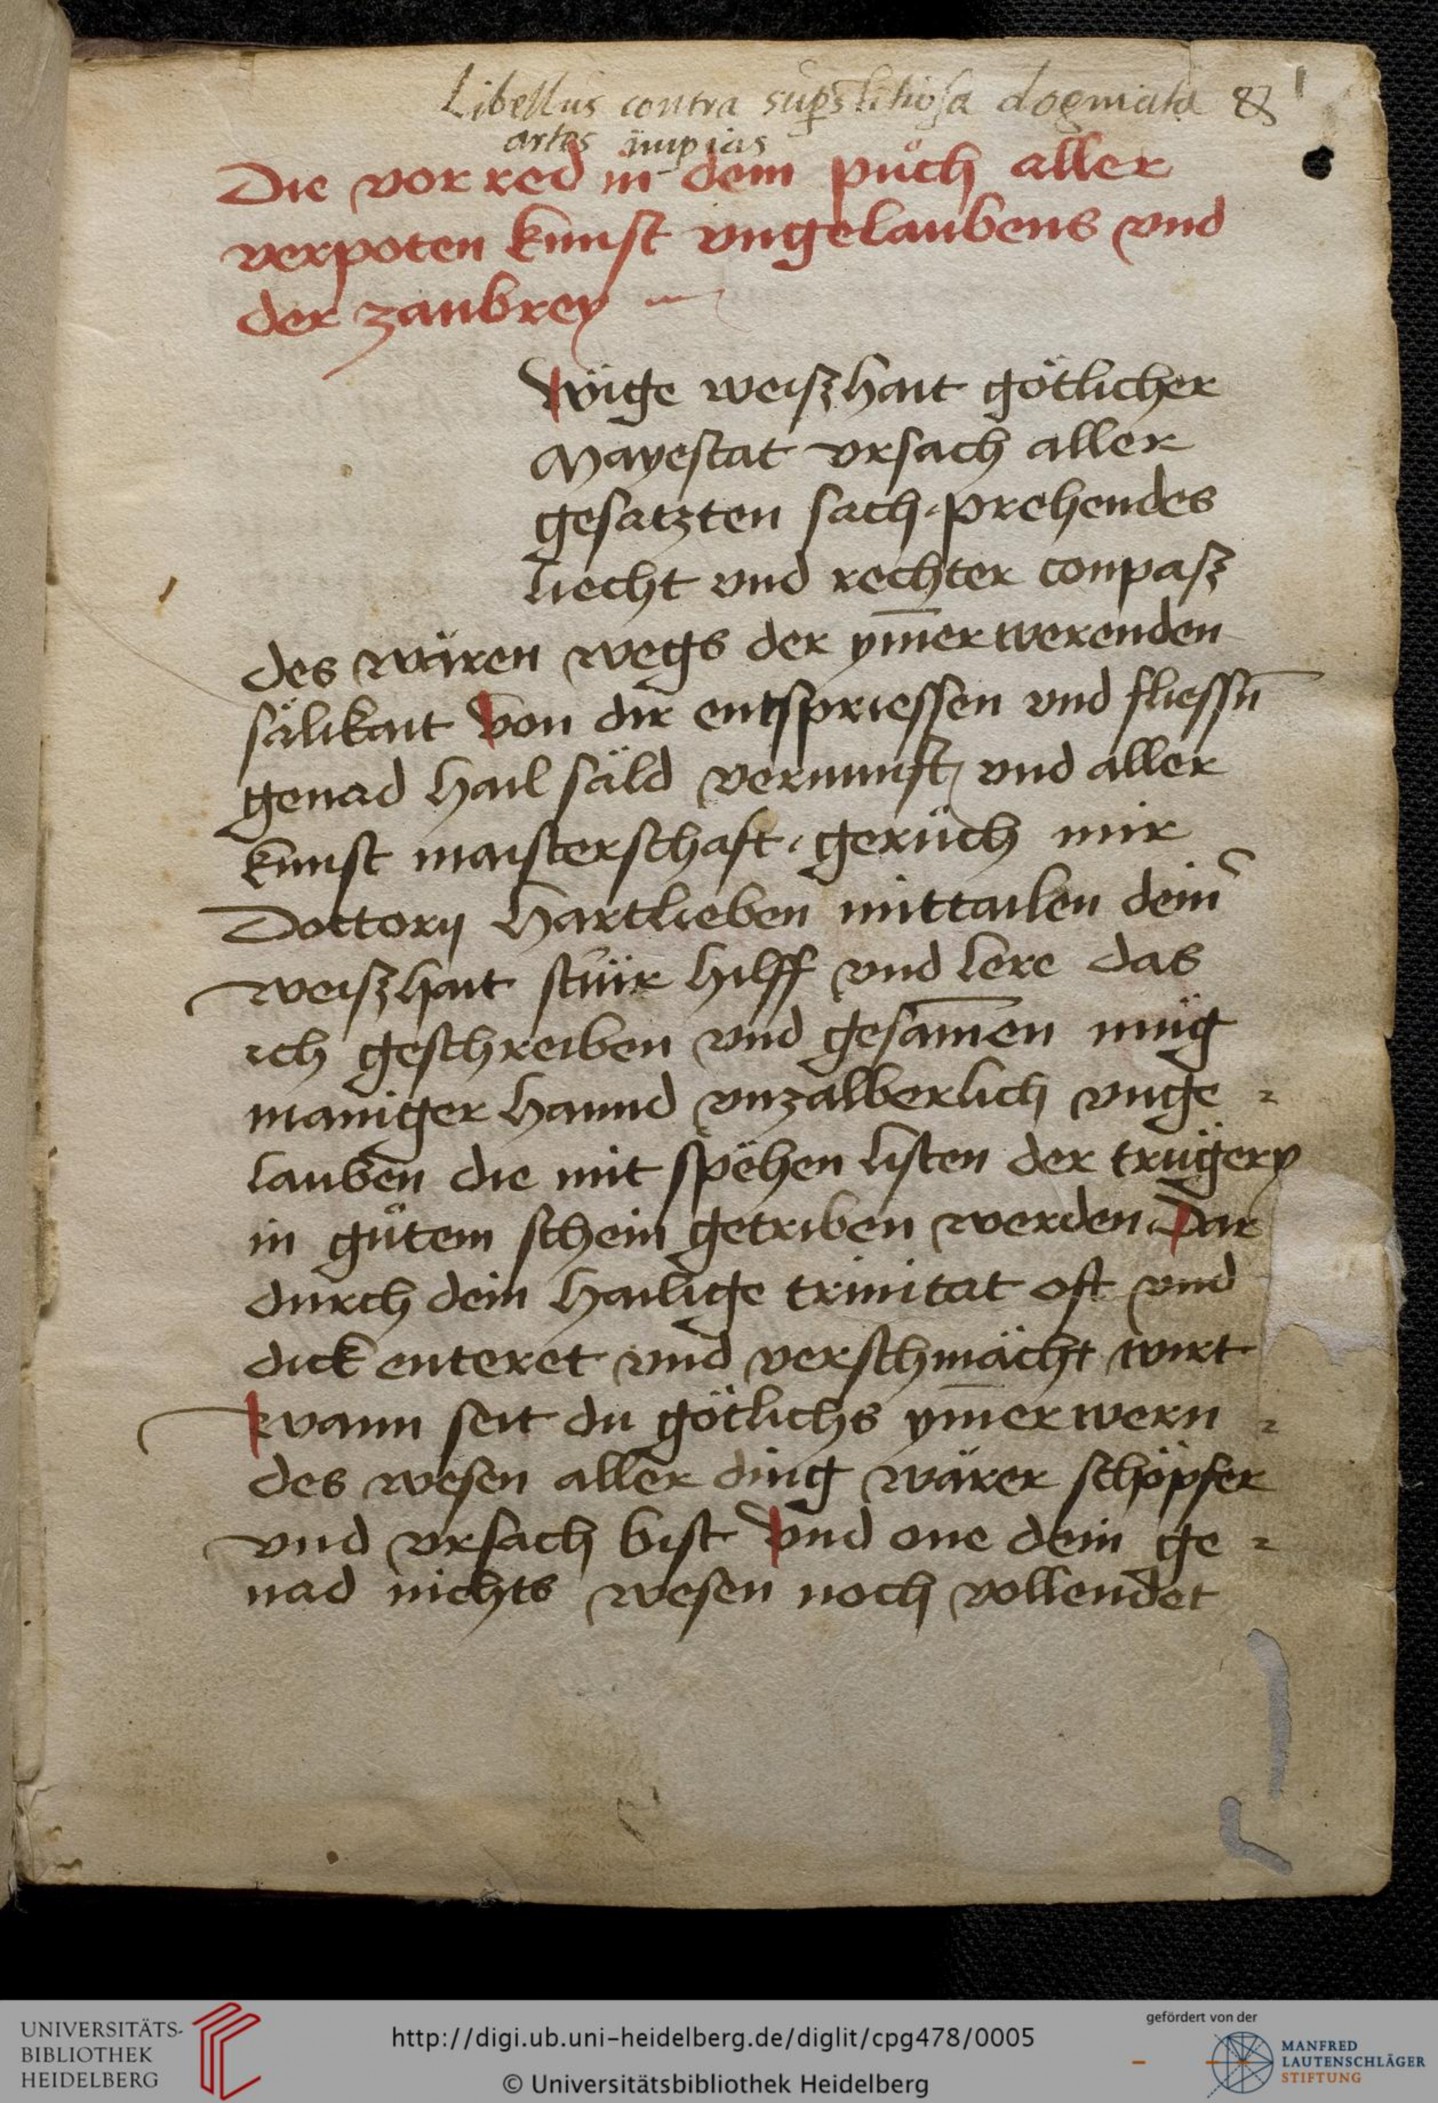 Libellus contra sup̄stitiosa dogmata &
artes impias
1
Die vor red in dem půch aller
verpoten kunst vngelaubens vnd
der zaubrey
Wige weiszhait götlicher
Mayestat vrsach aller
gesatzten sach prehendes
liecht vnd rechter conpasz
des wären wegs der ym̄er werenden
sälikait Von dir entspriessen vnd fliessn̄
genad hail säld vernunft vnd aller
kunst maisterschaft gerüch mir
Doctorij Hartlieben mittailen dein̄
weiszhait stüir hilff vnd lere das
ich geschreiben vnd gesam̄en müg
maniger hannd vnzalberlich vnge=
lauben die mit spëhen listen der trügery
in gůtem schein getriben werden Dar
durch dein hailige trinitat oft vnd
dick enteret vnd verschmächt wirt
Wann seit du götlichs ym̄er wern=
des wesen aller ding wärer schöpfer
vnd vrsach bist Vnd one dein ge=
nad nichts wesen noch vollendet
UNIVERSITÄTS-
BIBLIOTHEK
HEIDELBERG
http://digi.ub.uni-heidelberg.de/diglit/cpg478/0005
© Universitätsbibliothek Heidelberg
gefördert von der
MANFRED
LAUTENSCHLÄGER
STIFTUNG